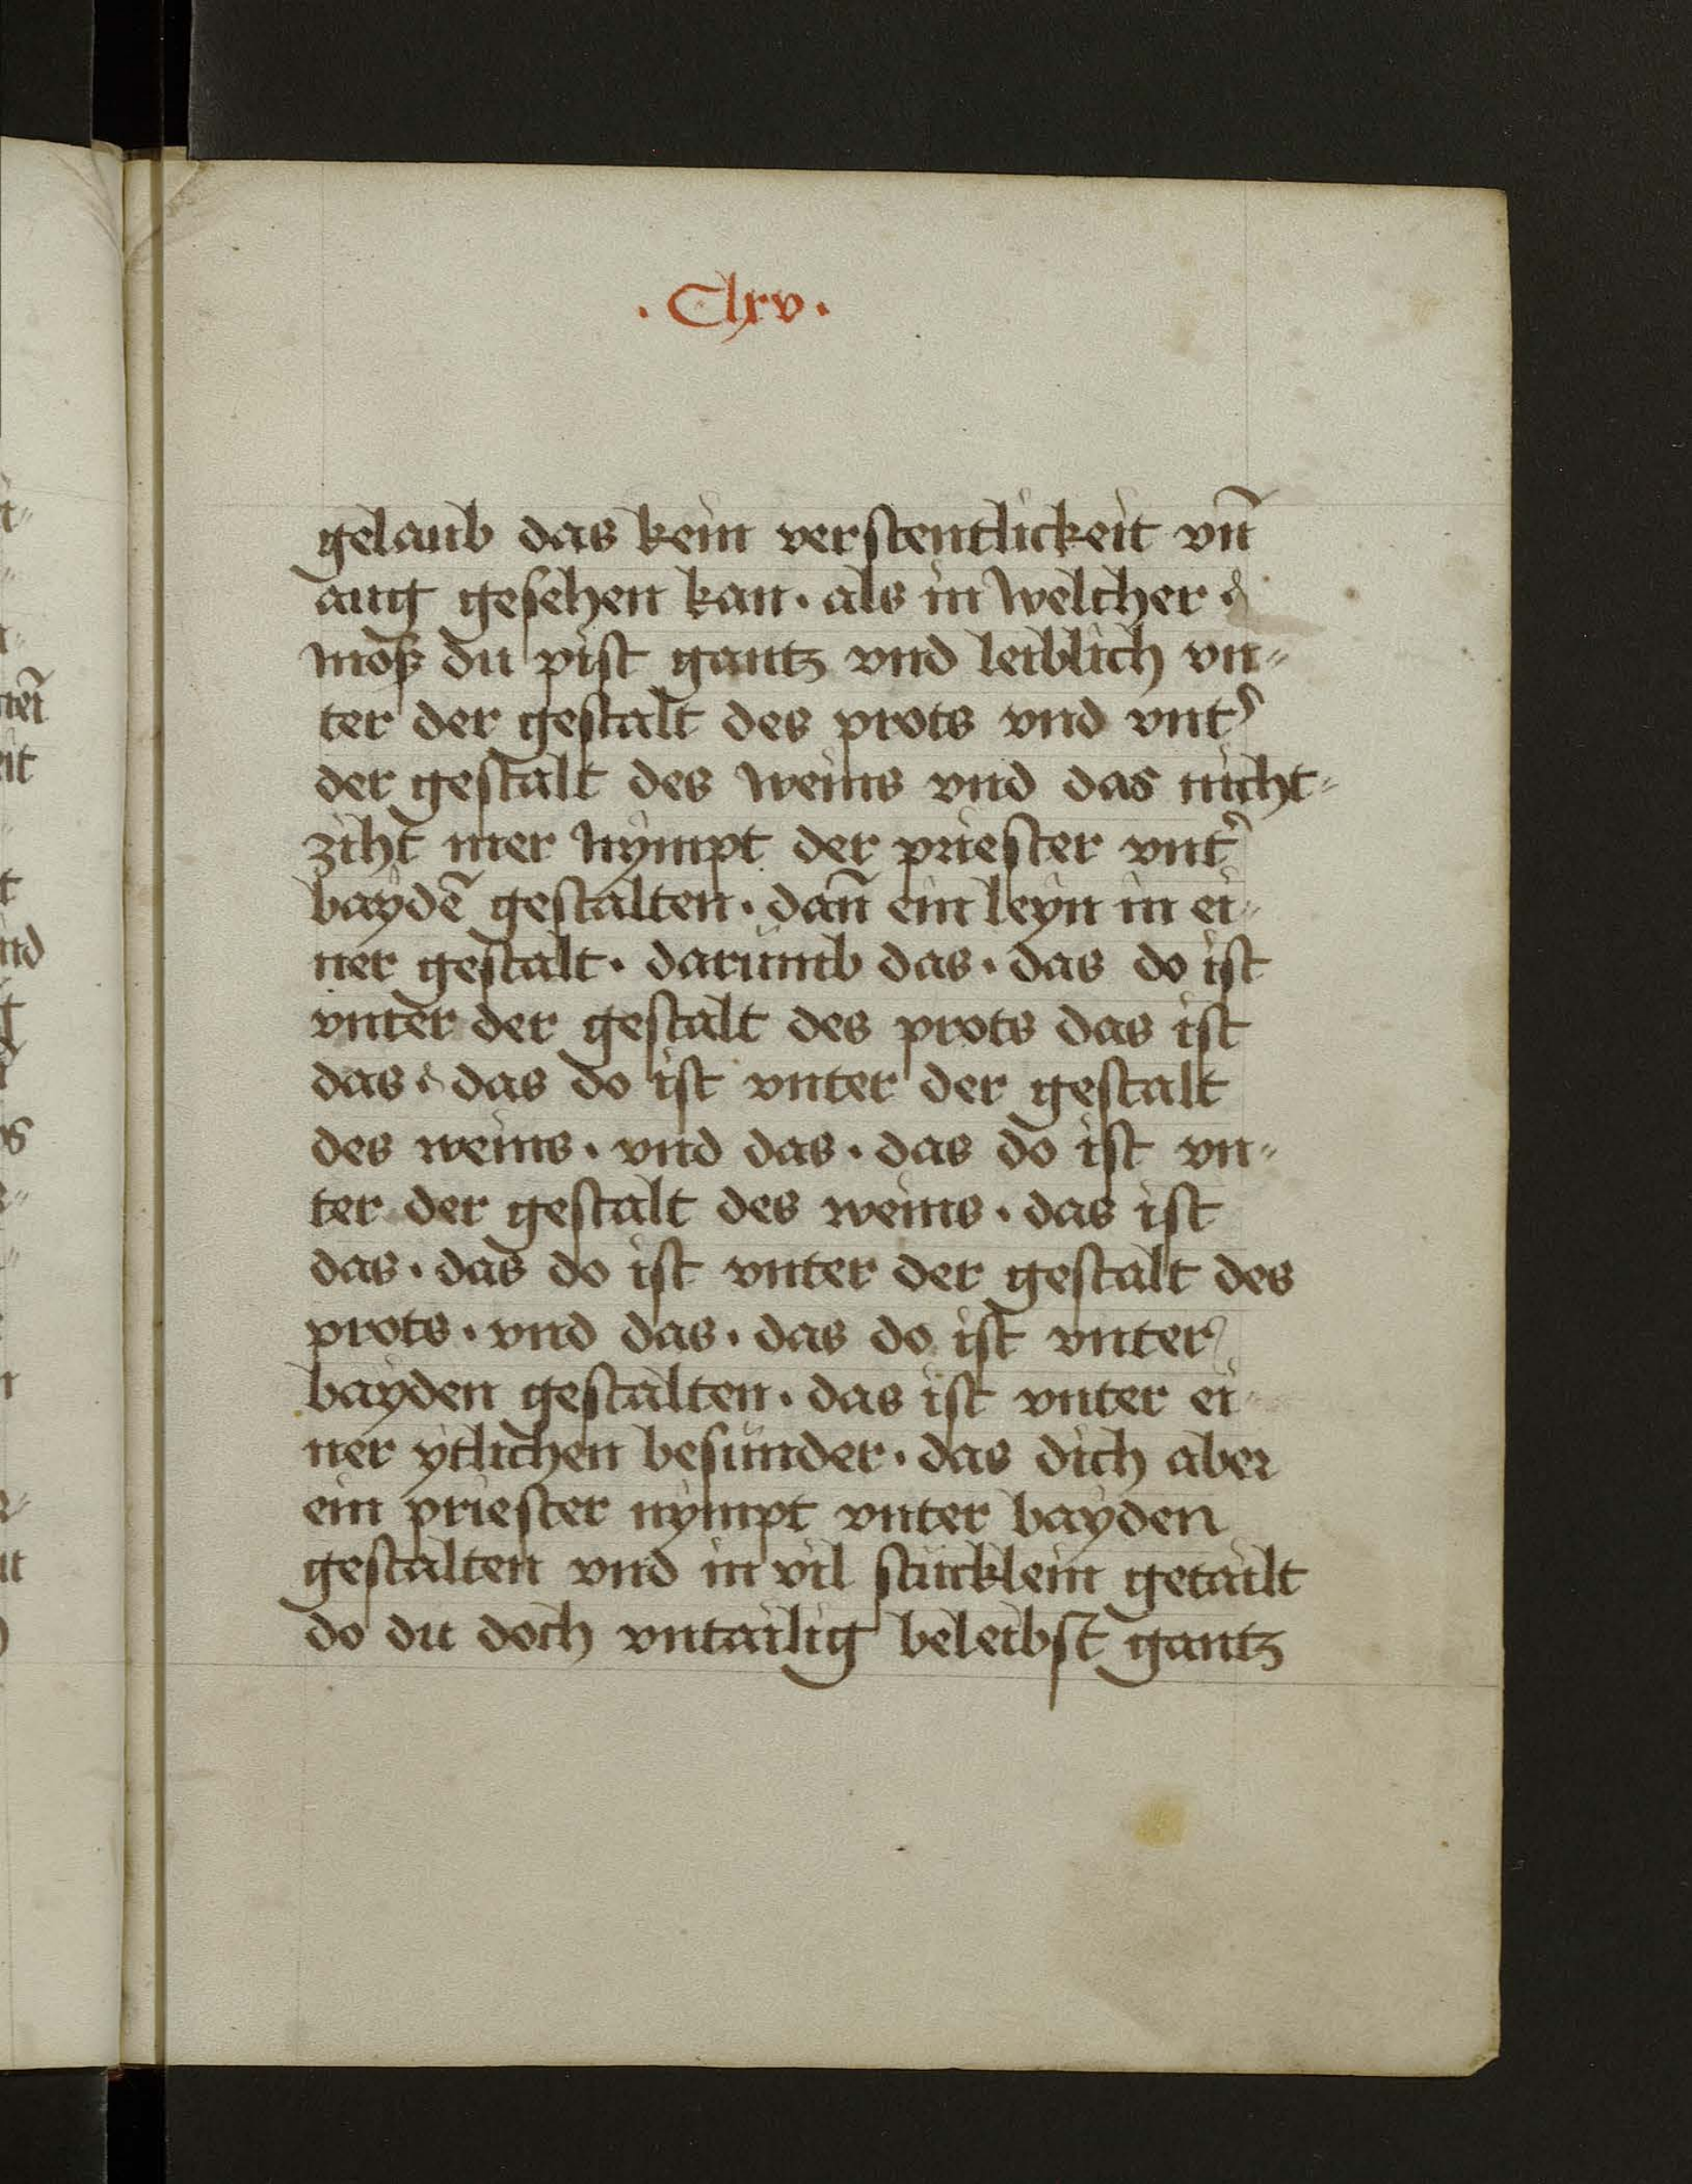 . Clxv .
gelaub das kein verstentlickeit vn̄
aug gesehen kan · als in welcher
moß du pist gantz vnd leiblich vn„
ter der gestalt des prots vnd vntᵉʳ
der gestalt des weins vnd das nicht„
ziht mer nympt der priester vntᵉʳ
baydē gestalten · dan̄ ein leyn in ei„
ner gestalt · darumb das · das do ist
vnter der gestalt des prots das ist
das · das do ist vnter der gestalt
des weins · vnd das · das do ist vn„
ter der gestalt des weins · das ist
das · das do ist vnter der gestalt des
prots · vnd das · das do ist vnter
bayden gestalten · das ist vnter ei„
ner ytlichen besunder · das dich aber
ein priester nympt vnter bayden
gestalten vnd in vil stücklein getailt
do du doch vntailig beleibst gantz